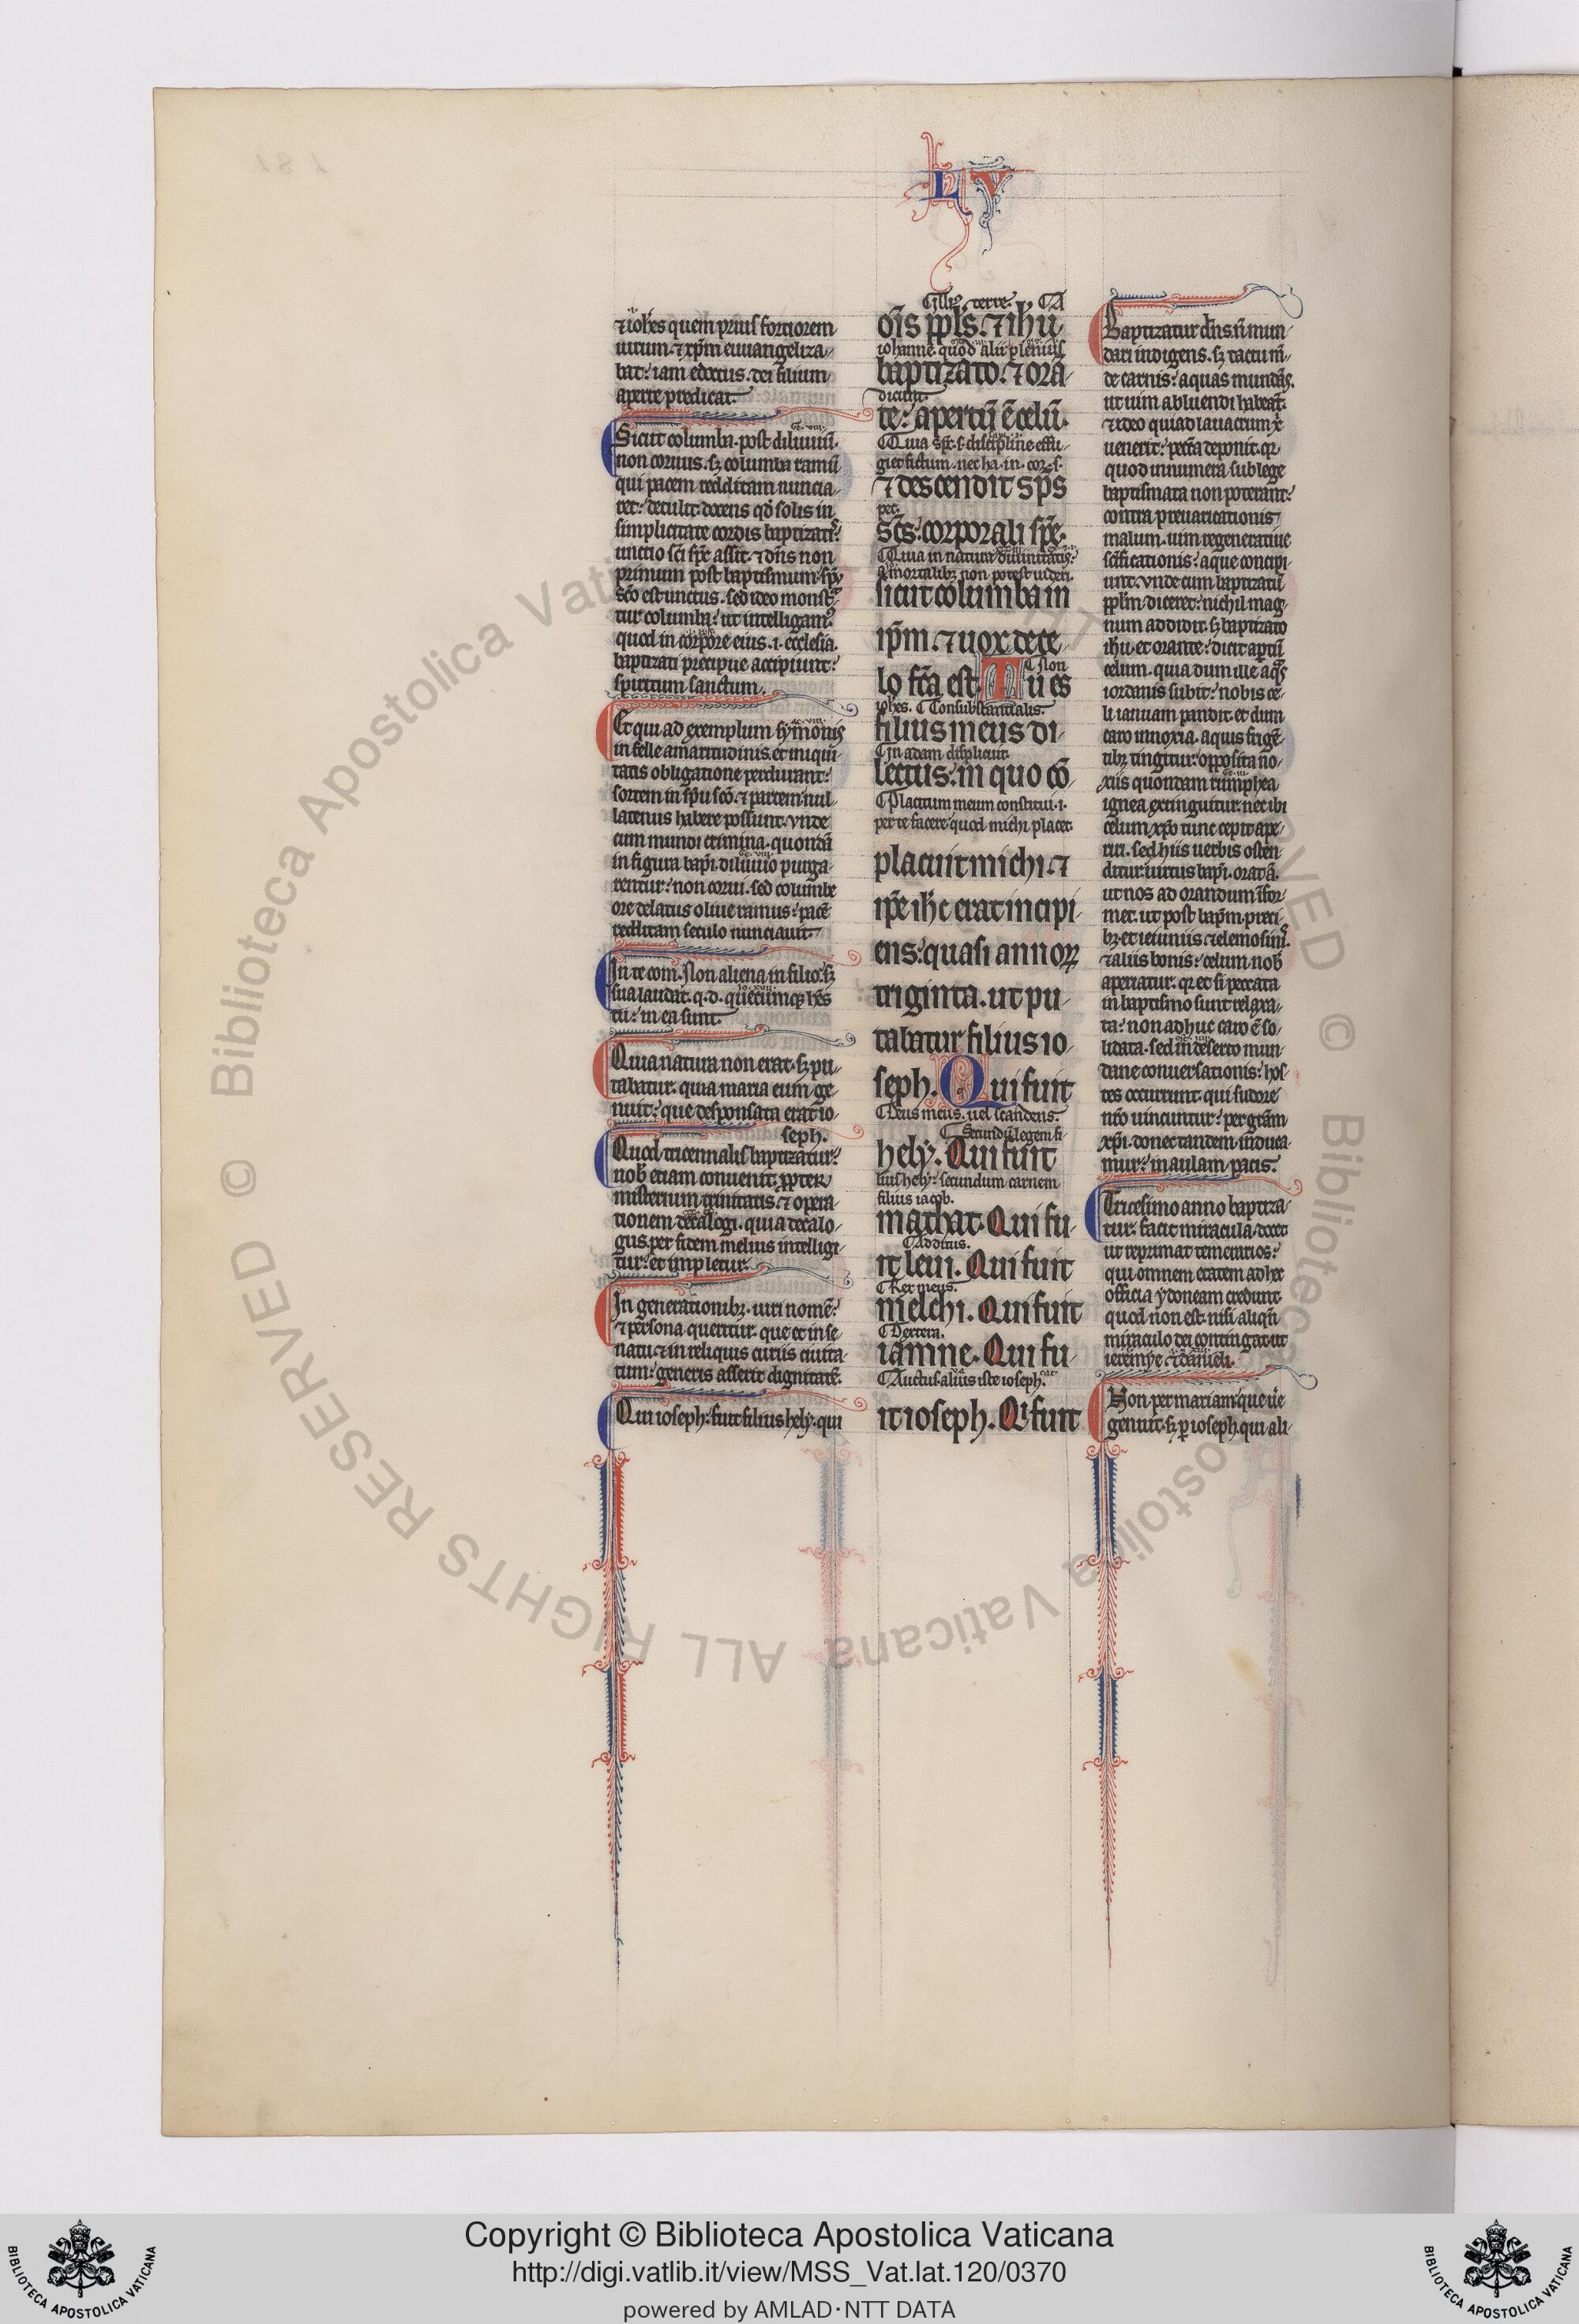 LV
⁊ ioh̄es quem prius fortiorem
uirum. ⁊ xp̄m euuangeliza-
bat: iam edoctus. dei filium
aperte predicat.
Sicut columba. post diluuiū.
non coruus. sꝫ columba ramū
qui pacem redditam nuncia-
ret: detulit. docens qd̄ solis in
simplicitate cordis baptizatis:
unctio sc̄i sp̄c assit. ⁊ dn̄s non
primum post baptismum sp̄u
sc̄o est unctus. sed ideo monstra-
tur columba: ut intelligam᷒
quod in corpore eius .i. ecclesia.
baptizati precipue accipiunt:
spiritum sanctum.
Et qui ad exemplum symonis
in felle amaritudinis. et iniqui-
tatis obligatione perdurant:
sortem in sp̄u sc̄o. ⁊ partem nul-
latenus habere possunt. vnde
cum mundi crimina. quondā
in figura bap̄i. diluuio purga-
rentur: non corui. sed columbe
ore delatus oliue ramus: pacē
redditam seculo nunciauit.
In te com. Non aliena in filio: sꝫ
sua laudat. q. d. quecumqꝫ hēs
tu: mea sunt.
Quia natura non erat. sꝫ pu-
tabatur. quia maria eum ge-
nuit: que desponsata erat io-
seph.
Quod tricennalis baptizatur:
nob̄ etiam conuenit. ꝓpter
misterium trinitatis. ⁊ opera-
tionem decalogi. quia decalo-
gus. per fidem melius intelligi-
tur: et impletur.
In generationibꝫ. uiri nomē:
⁊ persona queritur. que et in se-
natu. ⁊ in reliquis curiis ciuita-
tum: generis asserit dignitatē.
Qui ioseph: fuit filius hely. qui
terre.
om̄s pp̄ls. ⁊ ih̄u
iohanne. quod alii plenius
baptizato. ⁊ orā-
dicunt.
te: apertū ē celū.
Quia sp̄c. s. discipline effu-
giet fictum. nec ha. in. cor. s.
⁊ descendit sp̄s
pec.
sc̄s: corporali sp̄e.
Quia in natura diuinitatis:
a mortalibꝫ non potest uideri.
sicut columba in
ip̄m. ⁊ uox de ce-
Non
lo fc̄a est. Tu es
ioh̄es. Consubstantialis.
filius meus di-
In adam displicuit.
lectus: in quo cō-
Placitum meum constitui. i.
per te facere quod michi placet.
placuit michi. ⁊
ip̄e ih̄c erat incipi-
ens: quasi annoꝝ
triginta. ut pu-
tabatur filius io-
seph. Qui fuit
Deus meus. uel scandens.
Secundum legem fi-
hely. Qui fuit
lius hely: secundum carnem
filius iacob.
mathat. Qui fu-
Additus.
it leui. Qui fuit
Rex meus.
melchi. Qui fuit
Dextera.
iamne. Qui fu-
Auctus. alius iste ioseph.
it ioseph. Qi fuit
Baptizatur dn̄s. n̄ mun-
dari indigens. sꝫ tactu m̄-
de carnis: aquas mundās.
ut uim abluendi habeāt.
⁊ ideo qui ad lauacrum x̄
uenerit: pecc̄a deponit. qr
quod innumera sub lege
baptismata non poterant:
contra preuaricationis
malum. uim regeneratiue
sc̄ificationis: aque concipi-
unt. vnde cum baptizatū
pp̄lm diceret: nichil mag-
num addidit. sꝫ baptizato
ih̄u. et orante: dicit aptū
celum. quia dum ille aq̄s
iordanis subit: nobis ce-
li ianuam pandit. et dum
caro innoxia. aquis frigē-
tibꝫ tingitur: opposita no-
xiis quondam rumphea
ignea extinguitur. nec ibi
celum xp̄o tunc cepit ape-
riri. sed hiis uerbis osten-
ditur: uirtus bap̄i. orat ā.
ut nos ad orandum īfor-
met. ut post bap̄m. preci-
bꝫ. et ieiuniis ⁊ elemosinis.
⁊ aliis bonis: celum nob̄
aperiatur. qr et si peccata
in baptismo sunt relaxa-
ta: non adhuc caro ē so-
lidata. sed in deserto mun-
dane conuersationis: hos-
tes occurrunt. qui sudore
nr̄o uincuntur: per grām
xp̄i. donec tandem induca-
mur: in aulam pacis.
Tricesimo anno baptiza-
tur. facit miracula. docet
ut reprimat temerarios:
qui omnem etatem ad hec
officia ydoneam credunt.
quod non est. nisi aliqn̄
miraculo dei contingat. ut
ieremye ⁊ danieli.
Non per mariam que ue
genuit. sꝫ ꝑ ioseph. qui ali-
Copyright © Biblioteca Apostolica Vaticana
http://digi.vatlib.it/view/MSS_Vat.lat.120/0370
powered by AMLAD·NTT DATA
BIBLIOTECA APOSTOLICA VATICANA
BIBLIOTECA APOSTOLICA VATICANA
© Biblioteca Apostolica Vaticana ALL RIGHTS RESERVED